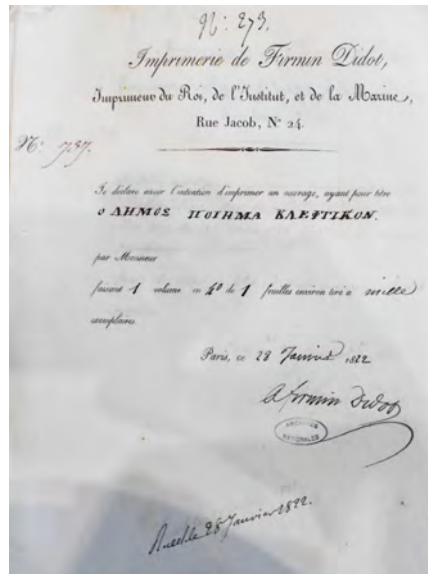 N.º 273.
Imprimerie de Firmin Didot,
Imprimeur du Roi, de l'Institut, et de la Marine,
Rue Jacob, Nº 24.
Nº 737.
Je déclare avoir l'intention d'imprimer un ouvrage, ayant pour titre
Ο ΔΗΜΟΣ ΠΟΙΗΜΑ ΚΛΕΦΤΙΚΟΝ.
par Monsieur
faisant 1 volume in 4º de 1 feuilles environ tiré à mille
exemplaires
Paris, ce 28 Janvier 1822
A firmin Didot
ARCHIVES
NATIONALES
le 28 Janvier 1822.